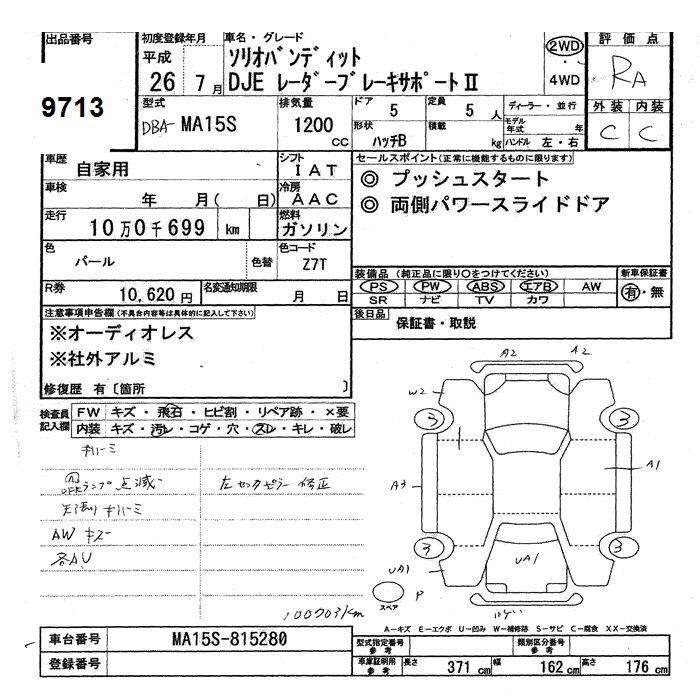 出品番号
9713
初度登録年月
平成
26 7月
車名・グレード
ソリオバンディット
DJE レーダーブレーキサポートⅡ
2WD
4WD
評価点
RA
外装 内装
C C
型式
DBA- MA15S
排気量
1200
cc
ドア 5
形状 ハッチB
定員 5 人
積載 kg
ディーラー・並行
モデル年式 年
ハンドル 左・右
車歴 自家用
シフト IAT
車検 年 月( 日)
冷房 AAC
走行 10万0千699 km
燃料 ガソリン
色 パール 色替
色コード Z7T
R券 10,620円
名変通知期限 月 日
セールスポイント(正常に機能するものに限ります)
◎ プッシュスタート
◎ 両側パワースライドドア
装備品(純正品に限り○をつけてください)
PS PW ABS エアB AW
SR ナビ TV カワ
新車保証書
有・無
後日品 保証書・取説
注意事項申告欄(不具合内容等は具体的に記入して下さい)
※オーディオレス
※社外アルミ
修復歴 有〔箇所 〕
検査員記入欄
FW キズ・飛石・ヒビ割・リペア跡・×要
内装 キズ・汚レ・コゲ・穴・スレ・キレ・破レ
OFFランプ点滅
左センタピラー 修正
AW キズ
各AU
100703km
A2 A2
W2
3 3
A1
A3
3 3
UA1
UA1
P
スペア
A-キズ E-エクボ U-凹み W-補修跡 S-サビ C-腐食 XX-交換済
車台番号 MA15S-815280
登録番号
型式指定番号 参考
類別区分番号 参考
車庫証明用 参考
長さ 371cm 幅 162cm 高さ 176cm